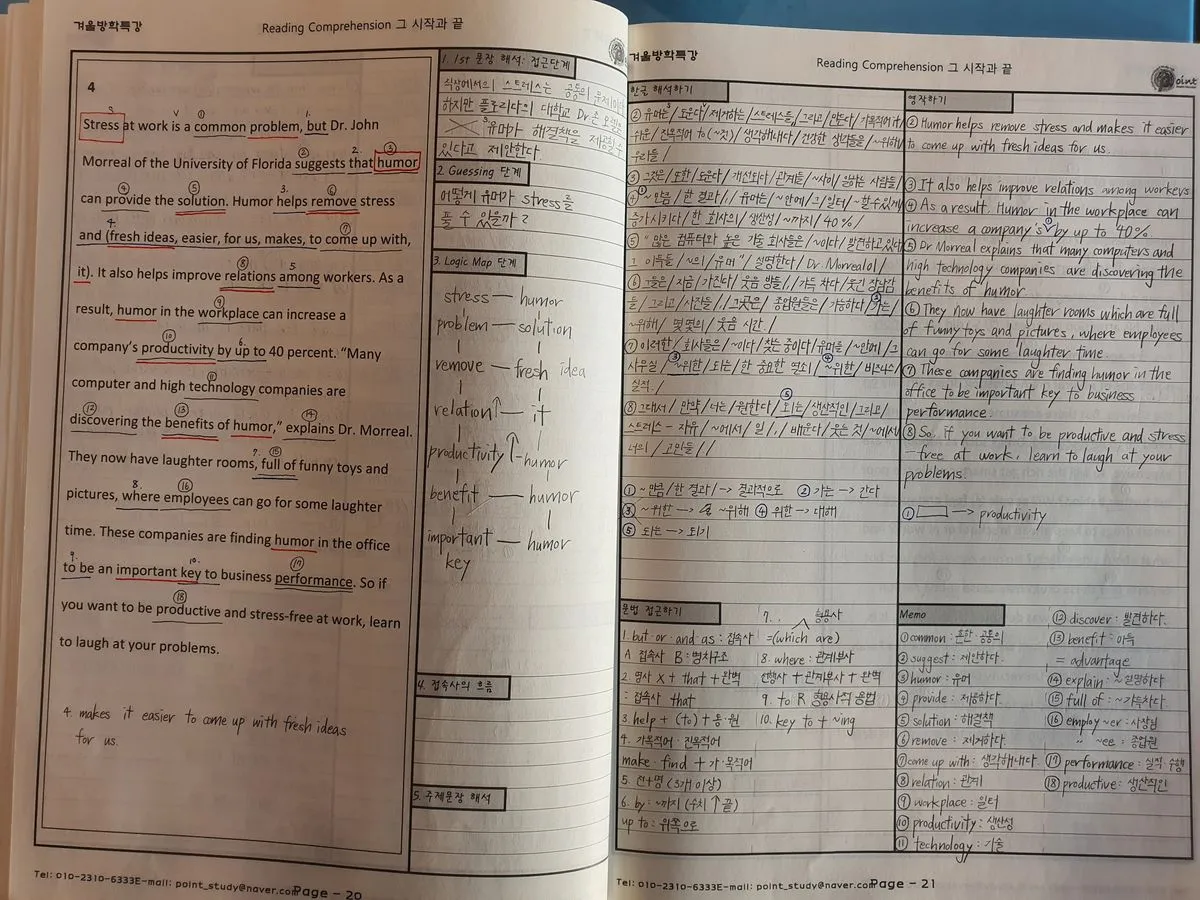 겨울방학특강
Reading Comprehension 그 시작과 끝
4
Stress at work is a common problem, but Dr. John
Morreal of the University of Florida suggests that humor
can provide the solution. Humor helps remove stress
and (fresh ideas, easier, for us, makes, to come up with,
it). It also helps improve relations among workers. As a
result, humor in the workplace can increase a
company's productivity by up to 40 percent. "Many
computer and high technology companies are
discovering the benefits of humor," explains Dr. Morreal.
They now have laughter rooms, full of funny toys and
pictures, where employees can go for some laughter
time. These companies are finding humor in the office
to be an important key to business performance. So if
you want to be productive and stress-free at work, learn
to laugh at your problems.
4. makes it easier to come up with fresh ideas
for us.
1. 1st 문장 해석: 접근단계
직장에서의 스트레스는 공통의 문제이다
하지만 플로리다의 대학교 Dr.은
유머가 해결책을 제공할 수
있다고 제안한다.
2. Guessing 단계
어떻게 유머가 stress를
풀 수 있을까?
3. Logic Map 단계
stress — humor
problem — solution
remove — fresh idea
relation↑ — it
productivity ↑ - humor
benefit — humor
important — humor
key
4. 접속사의 흐름
5. 주제문장 해석
Tel: 010-2310-6333E-mail: point_study@naver.com
Page - 20
겨울방학특강
Reading Comprehension 그 시작과 끝
oint
한글 해석하기
② 유머는/도운다/제거하는/스트레스를/그리고/만든다/가목적어 it/
쉬운/진목적어 to(~것)/생각해내다/건강한 생각들을/~위해/
우리들/
③ 그것은/또한/도운다/개선되다/관계들/~사이/일하는 사람들/
④ ~만큼/한 결과//유머는/~안에/그 일터/~할 수 있게
증가시키다/한 회사의/생산성/~까지/40%/
⑤ "많은 컴퓨터와 높은 기술 회사들은/~이다/발견하고 있다
그 이득들/~의/유머"/설명한다/Dr. Morreal이/
⑥ 그들은/지금/가진다/웃음 방들//가득 차다/웃긴 장난감
들/그리고/사진들//그곳은/종업원들은/가능하다/가는/
~위해/몇몇의/웃음 시간./
⑦ 이러한/회사들은/~이다/찾는 중이다/유머를/~안에/그
사무실/~위한/되는/한 중요한 열쇠/~위한/비즈니스/
실적/
⑧ 그래서/만약/너는/원한다/되는/생산적인/그리고/
스트레스-자유/~에서/일/,/배운다/웃는 것/~에서
너의/고민들//
① ~만큼/한 결과/-> 결과적으로 ② 가는 -> 간다
③ ~위한 -> ~위해 ④ 위한 -> 대해
⑤ 되는 -> 되기
영작하기
② Humor helps remove stress and makes it easier
to come up with fresh ideas for us.
③ It also helps improve relations among workers
④ As a result. Humor in the workplace can
increase a company's ① by up to 40%
⑤ Dr Morreal explains that many computers and
high technology companies are discovering the
benefits of humor.
⑥ They now have laughter rooms which are full
of funny toys and pictures, where employees
can go for some laughter time.
⑦ These companies are finding humor in the
office to be important key to business
performance.
⑧ So. if you want to be productive and stress
-free at work, learn to laugh at your
problems.
① -> productivity
문법 접근하기
1. but·or·and·as: 접속사
A 접속사 B: 병치구조
2. 명사 X + that + 완벽
= 접속사 that
3. help + (to) + 동·원
4. 가목적어·진목적어
make·find + 가·목적어
5. 전+명 (3개 이상)
6. by: ~까지 (수치 ↑ 끝)
up to: 위쪽으로
7. 형용사
=(which are)
8. where: 관계부사
선행사 + 관계부사 + 완벽
9. to R 형용사적 용법
10. key to + ~ing
Memo
① common: 흔한·공통의
② suggest: 제안하다.
③ humor: 유머
④ provide: 제공하다.
⑤ solution: 해결책
⑥ remove: 제거하다.
⑦ come up with: 생각해내다.
⑧ relation: 관계
⑨ workplace: 일터
⑩ productivity: 생산성
⑪ technology: 기술
⑫ discover: 발견하다.
⑬ benefit: 이득
= advantage
⑭ explain: ~설명하다
⑮ full of: ~가득차다
⑯ employ ~er: 사장님
" ~ee: 종업원
⑰ performance: 실적·수행
⑱ productive: 생산적인
Tel: 010-2310-6333E-mail: point_study@naver.com
Page - 21